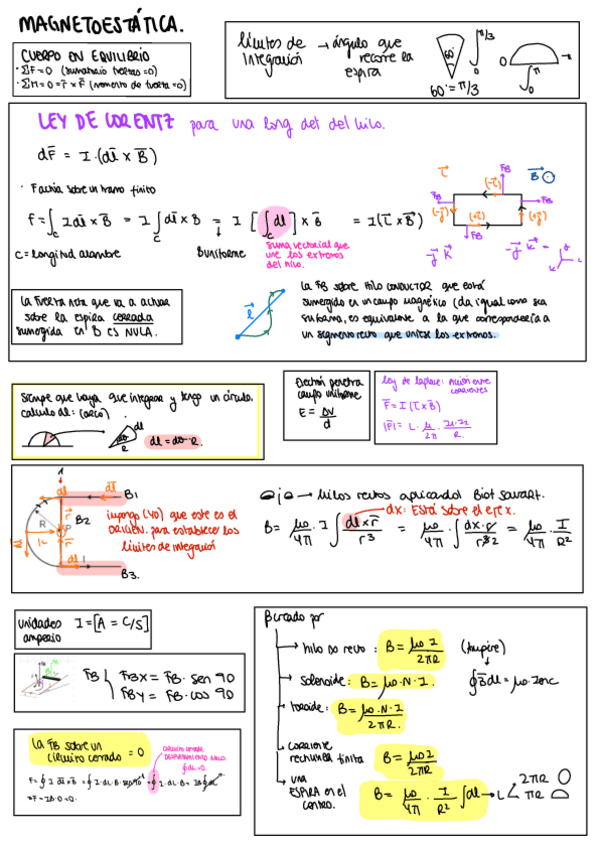 MAGNETOESTÁTICA.
CUERPO EN EQUILIBRIO
· ΣF=0 (sumatorio fuerzas=0)
· ΣM=0=r̄ x F̄ (momento de fuerza=0)
límites de → ángulo que
integración recorre la
espira
60°
π/3
0
60°=π/3
0
π
0
LEY DE LORENTZ para una long det del hilo.
dF̄ = I·(dl̄ x B̄)
· Fuerza sobre un tramo finito
F=∫c I dl̄ x B̄ = I ∫c dl̄ x B = I [∫c dl̄] x B̄ = I(L̄ x B̄)
C = longitud alambre
B uniforme
suma vectorial que
une los extremos
del hilo.
FB
B
La fuerza neta que va a actuar
sobre la espira cerrada
sumergida en B ES NULA.
La FB sobre HILO CONDUCTOR que está
sumergido en un campo magnético (da igual como sea
su forma, es equivalente a la que correspondería a
un segmento recto que uniese los extremos.
Siempre que haya que integrar y tengo un círculo,
calculo dl: (arco)
dl
dσ
R
dl = dσ·R.
Electrón penetra
campo uniforme
E = ΔV/d
Ley de Laplace: Acción entre
corrientes
F̄ = I (L̄ x B̄)
B1
B2
B3.
R
impongo (yo) que este es el
ORIGEN. para establecer los
límites de integración
hilos rectos aplicando Biot Savart.
dx: Está sobre el eje x.
B = μo/4π · I ∫ dl x r̄/r³ = μo/4π · ∫ dx·r/r³² = μo/4π · I/R²
unidades I=[A = C/S]
amperio
FB
FBx = FB· sen 90
FBy = FB· cos 90
La FB sobre un
circuito cerrado = 0
B creado por
→ hilo ∞ recto : B = μo·I/2πR (Ampere)
∮B̄dl = μo·Ienc
→ solenoide : B = μo·N·I.
→ toroide : B = μo·N·I/2πR.
→ corriente
rectilínea finita B = μo I/2πR
→ UNA
ESPIRA en el
centro. B = μo/4π · I/R² ∫dl → L
2πR
πR